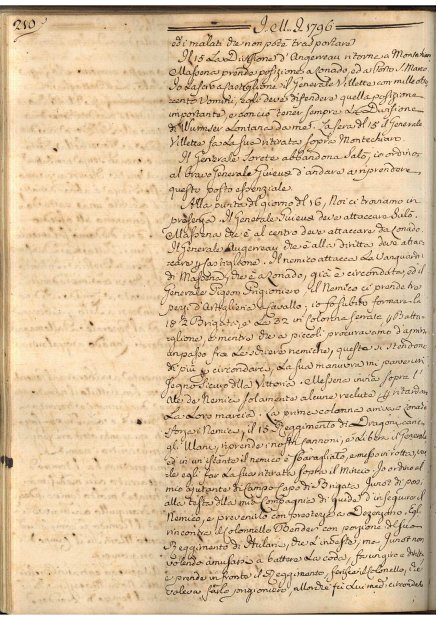 210
I. M. I. 1796
ed i malati che non potè trasportare
Il 15 La Divisione d'Angereau ritorna a Montechiari
Massena prende posizione a Lonado, ed a Ponte S. Marco
Io Lascio a Castiglione il Generale Villette con mille otto
cento Uomini; egli deve difendere quella posizione
importante, e con ciò tener sempre La Divisione
di Wumser Lontana da me. La sera del 15 il Generale
Villette fa La sua ritirata sopra Montechiaro.
Il Generale Sorete abbandona Salò; io ordino
al bravo Generale Guieux d'andare a riprendere
questo posto essenziale.
Alla punta del giorno del 16, Noi ci troviamo in
presenza. Il Generale Guieux deve attaccare Salò.
Massena che è al centro deve attaccare da Lonado.
Il Generale Augerreau che è alla diritta deve attac-
care p Castiglione. Il nemico attacca La Vanguardia
di Massena, che è a Lonado, già è circondata, ed il
Generale Pigeon Prigioniero. Il Nemico ci prende tre
pezzi d'Artiglieria a Cavallo; io fò subito formare la
18 2 Brigata, e La 32 in Colonna serrata p Batta-
glione, e mentre che a piccoli procuravamo d'aprirci
un passo fra Le schiere nemiche, queste si stendono
di più p circondarci, La sua manuvra mi parve un
segno sicuro della Vittoria. Massena invia sopra l'
ale de Nemici solamente alcune vedute p ritardare
La Loro marcia. La prima colonna arriva a Lonado
sforza i Nemici, il 15 Reggimento di Dragoni,
gli Ulani, riprende i nostri Cannoni, e Libera il Generale
ed in un istante il nemico è sbaragliato, e messo in rotta, vuo-
le egli far La sua ritirata sopra il Mincio. Io ordino al
mio ajutante di Campo Capo di Brigata Junot di por-
alla testa della mia Compagnia di guide d'inseguire il
Nemico, e prevenirlo con prestezza a Dezenzano. Egli
rincontra il Colonnello Bender con porzione del suo
Reggimento di Hulani, che L'investe, ma Junot non
volendo amusarsi a battere La coda, fa un giro a diritta
e prende in fronte il Reggimento, ferisce il Colonello, che
voleva farlo prigioniero, allorchè fu Lui med: circondato